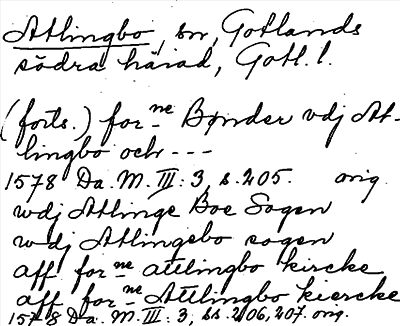 Atlingbo, sn, Gotlands
södra härad, Gotl. l.
(forts.) for ne Bønder vdj At-
lingbo och ---
1578 Da. M. III: 3, s. 205. orig.
wdj Atlinge Boe Sogen
wdj Atlingebo sogen
aff for ne attlingbo kircke
aff for ne Attlingbo kiercke
1578 Da. M. III: 3, ss. 206, 207. orig.